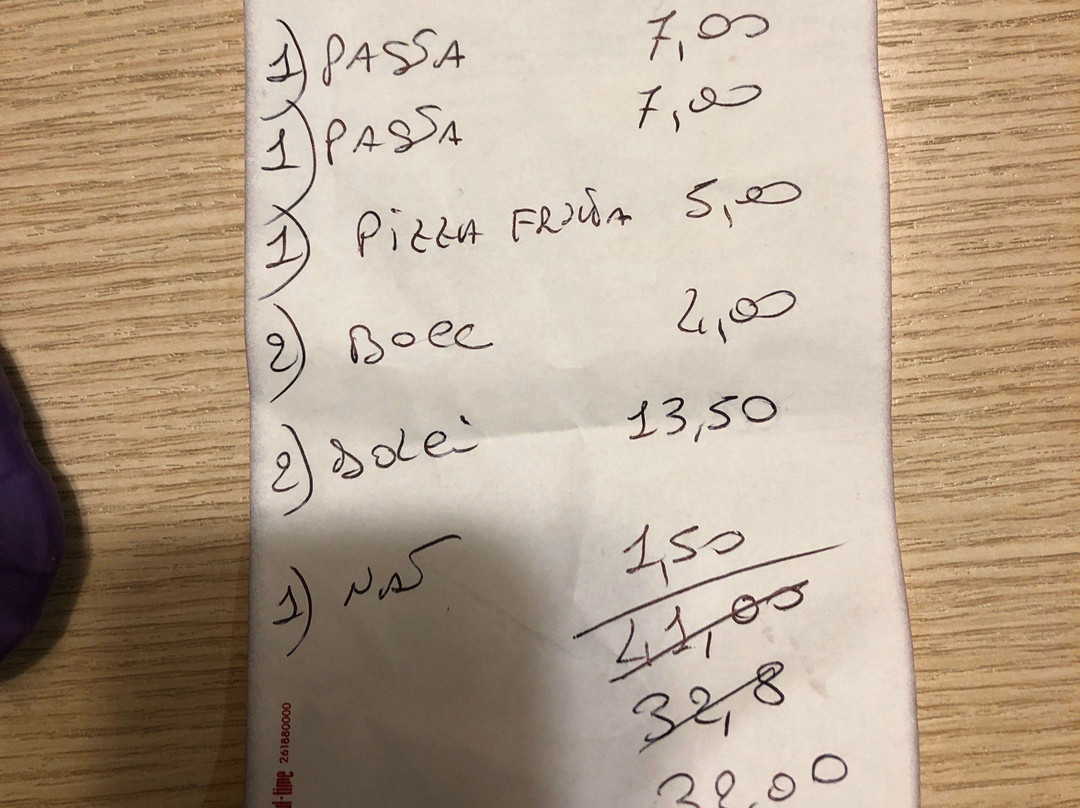 1) PASTA 7,00
1) PASTA 7,00
1) PIZZA FRITTA 5,00
2) 4,00
2) DOLCI 13,50
1) NAT 1,50
41,00
32,8
32,00
261880000